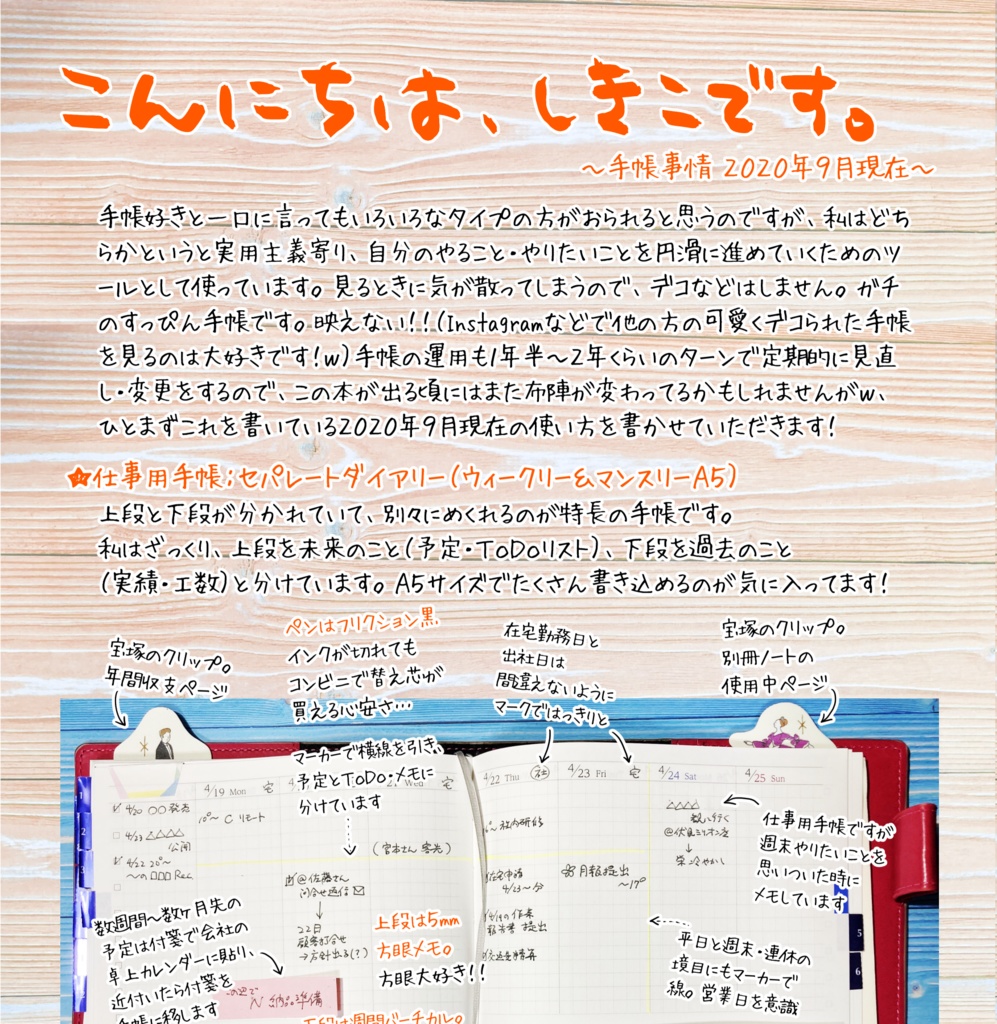 こんにちは、しきこです。
～手帳事情 2020年9月現在～
手帳好きと一口に言ってもいろいろなタイプの方がおられると思うのですが、私はどち
らかというと実用主義寄り、自分のやること・やりたいことを円滑に進めていくためのツ
ールとして使っています。見るときに気が散ってしまうので、デコなどはしません。ガチ
のすっぴん手帳です。映えない!!(Instagramなどで他の方の可愛くデコられた手帳
を見るのは大好きです!w)手帳の運用も1年半～2年くらいのターンで定期的に見直
し・変更をするので、この本が出る頃にはまた布陣が変わってるかもしれませんがw、
ひとまずこれを書いている2020年9月現在の使い方を書かせていただきます!
★仕事用手帳:セパレートダイアリー(ウィークリー&マンスリーA5)
上段と下段が分かれていて、別々にめくれるのが特長の手帳です。
私はざっくり、上段を未来のこと(予定・ToDoリスト)、下段を過去のこと
(実績・工数)と分けています。A5サイズでたくさん書き込めるのが気に入ってます!
宝塚のクリップ。
年間収支ページ
ペンはフリクション黒。
インクが切れても
コンビニで替え芯が
買える心安さ…
在宅勤務日と
出社日は
間違えないように
マークではっきりと
宝塚のクリップ。
別冊ノートの
使用中ページ
マーカーで横線を引き、
予定とToDo・メモに
分けています
4/19 Mon 宅
Wed 宅
4/22 Thu 社
4/23 Fri 宅
4/24 Sat
4/25 Sun
4/20 ○○発売
4/23 △△△△
公開
4/22 20°～
～の□□□Rec.
10°～ C リモート
(宮本さん 客先)
@佐藤さん
問合せ返信
↓
22日
顧客打合せ
→方針出る(?)
社内研修
在宅申請
4/23～分
月報提出
～17°
△△△△
観に行く
仕事用手帳ですが
週末やりたいことを
思いついた時に
メモしています
数週間～数ヶ月先の
予定は付箋で会社の
卓上カレンダーに貼り、
近付いたら付箋を
手帳に移します
納品準備
上段は5mm
方眼メモ。
方眼大好き!!
平日と週末・連休の
境目にもマーカーで
線。営業日を意識
1
2
3
5
6
下段は週間バーチカル。